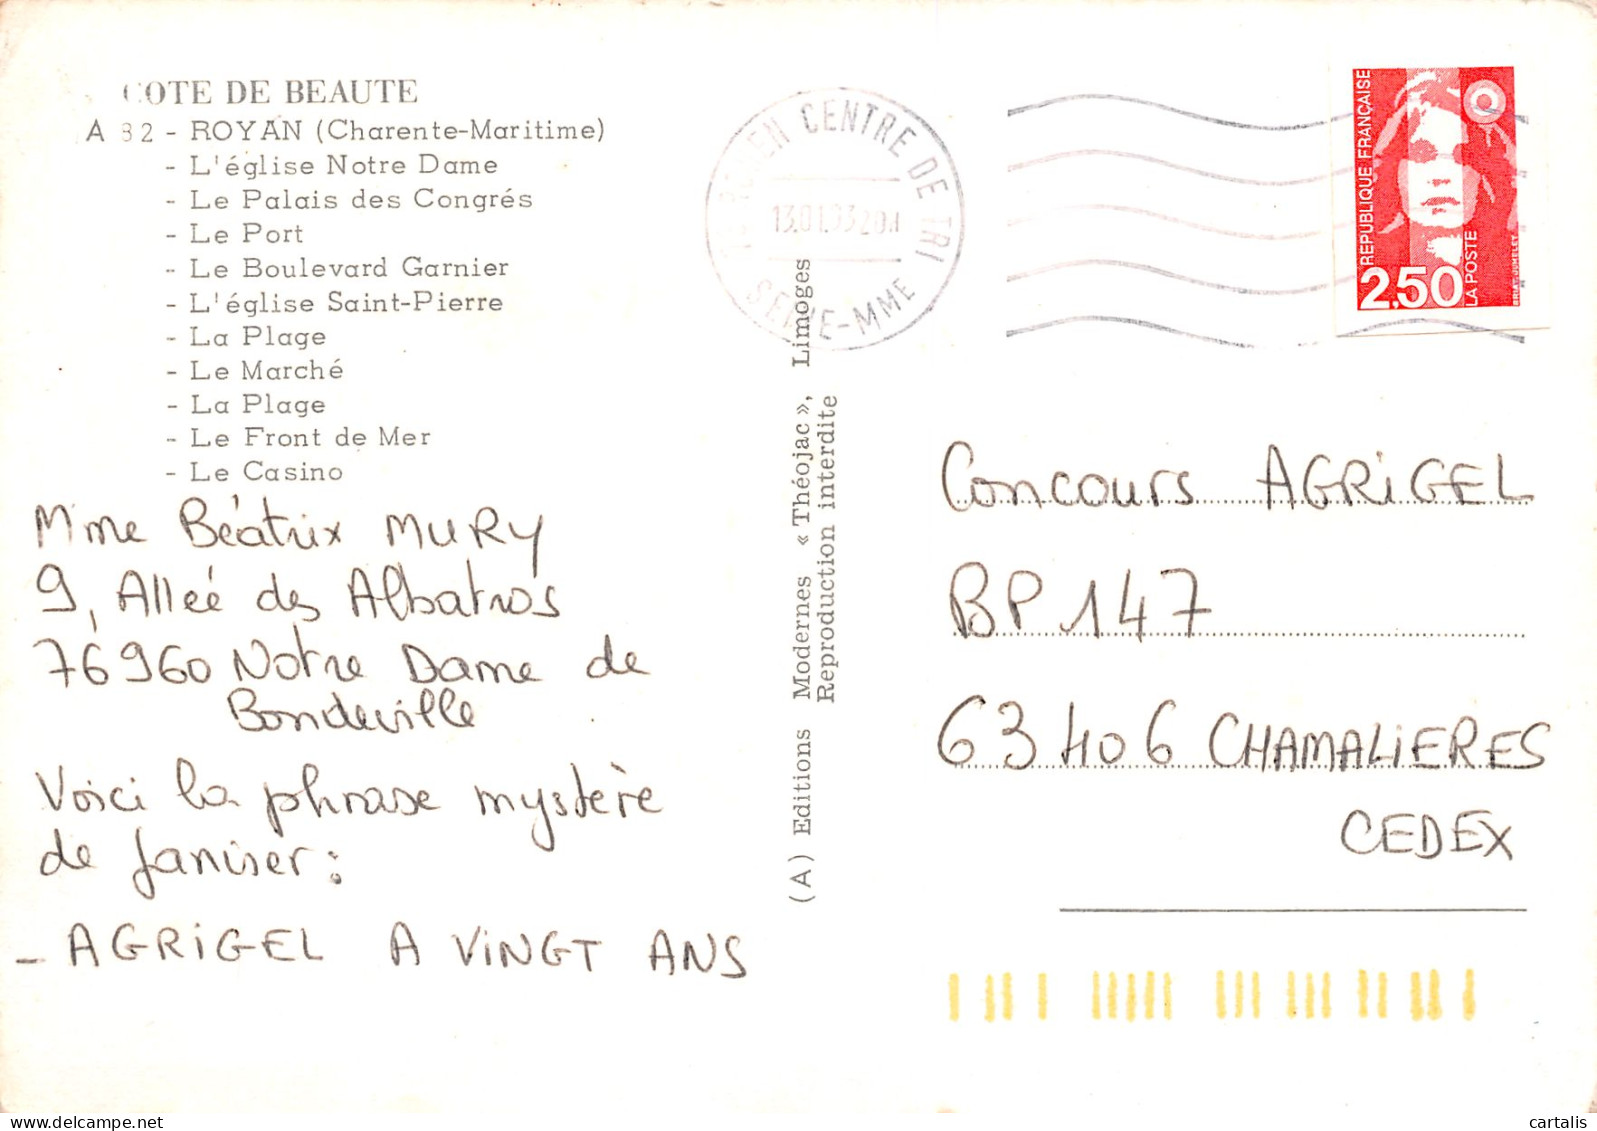 COTE DE BEAUTE
A 82 - ROYAN (Charente-Maritime)
- L'église Notre Dame
- Le Palais des Congrés
- Le Port
- Le Boulevard Garnier
- L'église Saint-Pierre
- La Plage
- Le Marché
- La Plage
- Le Front de Mer
- Le Casino
Mme Béatrix MURY
9, Allée des Albatros
76960 Notre Dame de
Bondeville
Voici la phrase mystère
de janvier :
- AGRIGEL A VINGT ANS
(A) Editions Modernes « Théojac », Limoges
Reproduction interdite
CENTRE DE TRI
13.01.93
SEINE-MME
REPUBLIQUE FRANÇAISE
2,50
LA POSTE
Concours AGRIGEL
BP 147
63406 CHAMALIERES
CEDEX
cartalis